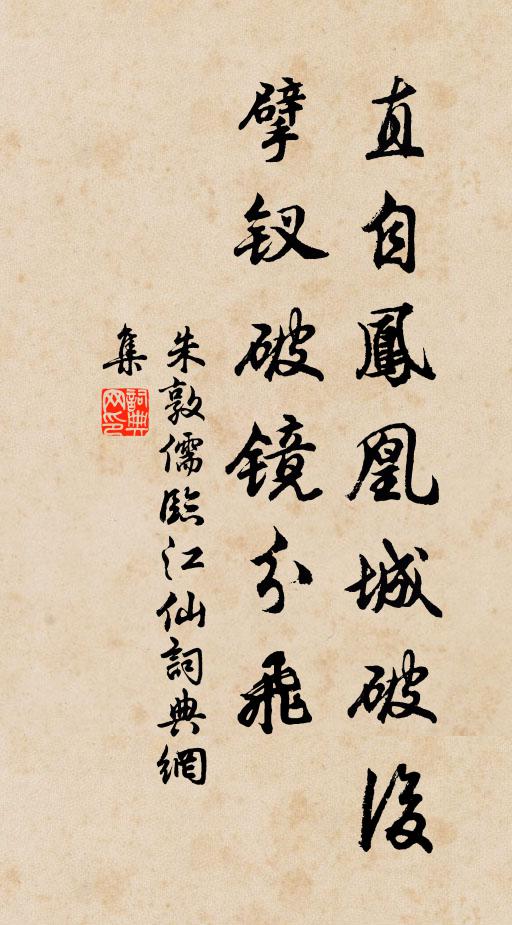 直自鳳凰城破後
擘釵破镜分飛
朱敦儒臨江仙詞典網
集
詞典
网印